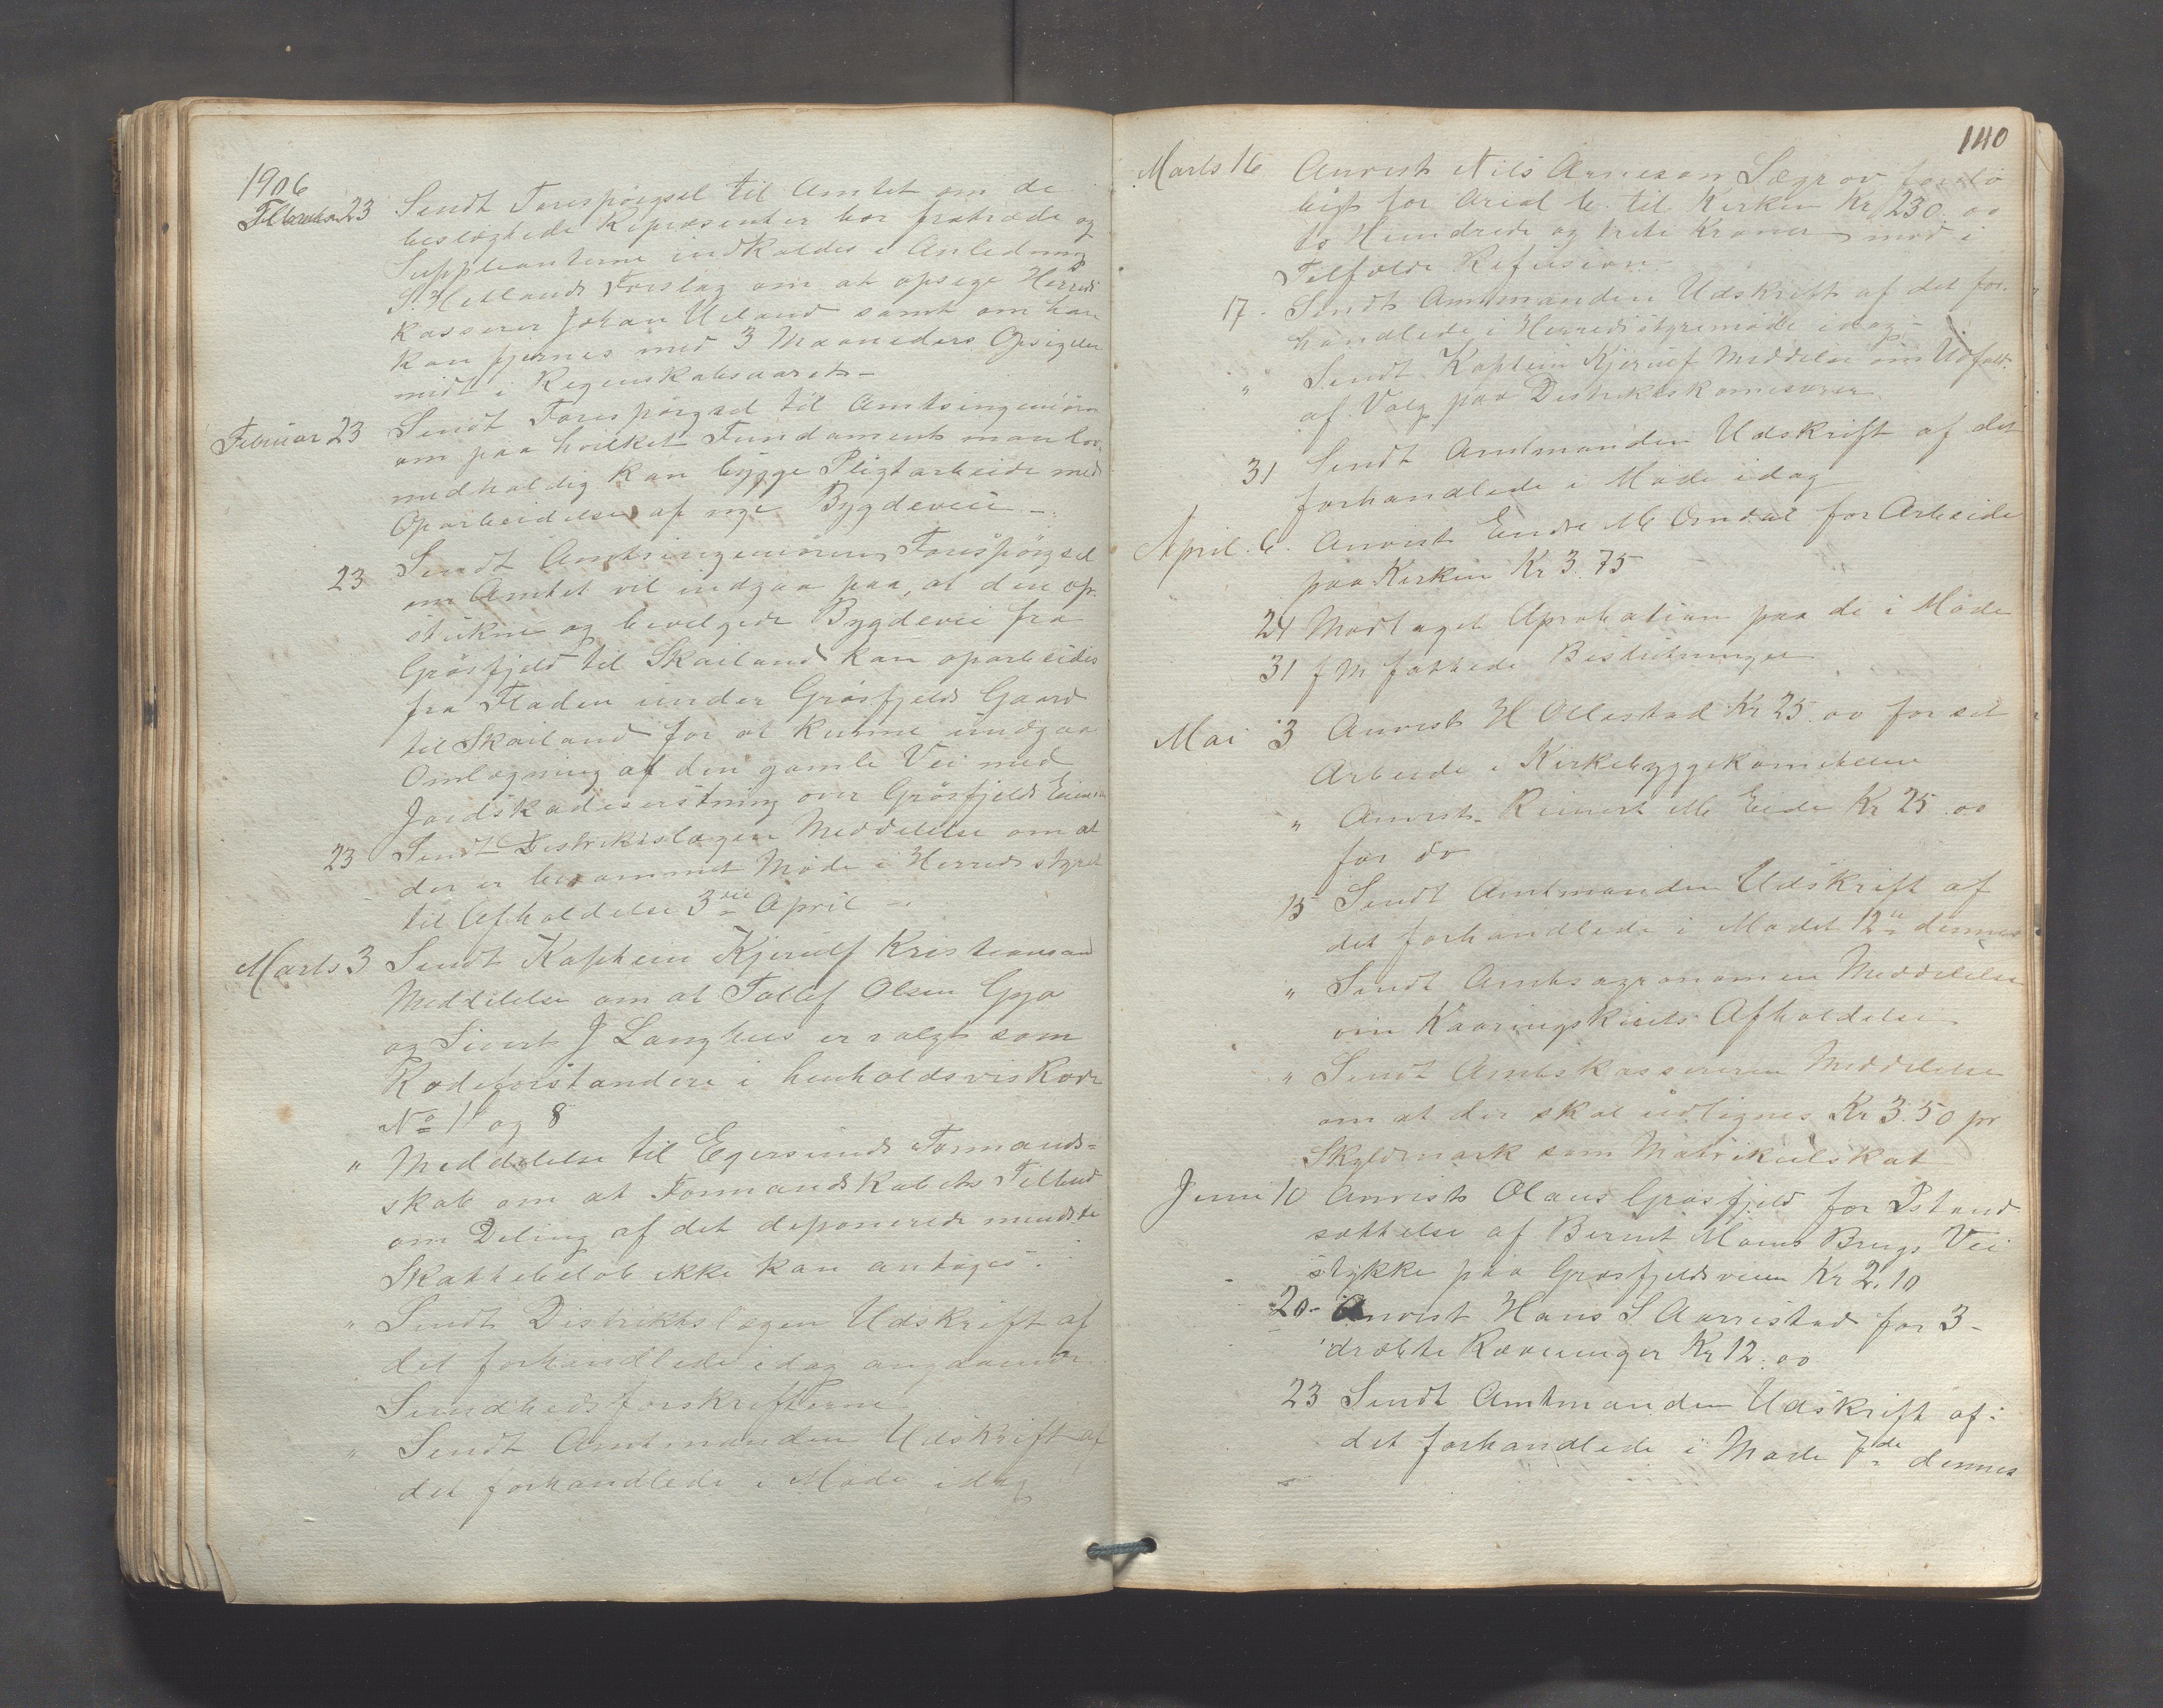 1906
Februar 23 Sendt Forespörgsel til Amtet om de
beslægtede Repræsenter bør fratræde og
Suppleanterne indkaldes i Anledning
S. Hetlands Forslag om at opsige Herreds
kasserer Johan Ueland samt om han
kan fjernes med 3 Maaneders Opsigelse
midt i Regnskabsaaret –
Februar 23 Sendt Forespörgsel til Amtsingeniøren
om paa hvilket Fundament man lov-
medholdig kan bygge Pligtarbeide med
Oparbeidelse af nye Bygdeveie –
23 Sendt Amtsingeniøren Forespörgsel
om Amtet vil indgaa paa, at den op-
stukne og bevilgede Bygdevei fra
Grösfjeld til Skailand kan oparbeides
fra Fladen under Grösfjelds Gaard
til Skailand for at kunne undgaa
Omlægning af den gamle Vei med
Jordskadeserstning over Grösfjelds
23 Sendt Distriktslægen Meddelelse om at
der er berammet Møde i Herredsstyret
til Afholdelse 3die April –
Marts 3 Sendt Kaptein Kjerulf Kristiansand
Meddelelse om at Tollef Olsen Gya
og Sivert J Langhus er valgt som
Rodeforstandere i henholdsvis Rode
No 1 og 8
" Meddelelse til Egersunds Formands-
skab om at Formandskabets Tilbud
om Deling af det deponerede mindste
Skattebeløb ikke kan antages.
" Sendt Distriktslægen Udskrift af
det forhandlede idag angaaende
Sundhedsforskrifterne
" Sendt Amtmanden Udskrift af
det forhandlede i Møde idag
140
Marts 16 Anvist Nils Arneson Sægrov forelø
bigt for Arbd. til Kirken Kr 230.00
to Hundrede og treti Kroner mod i
Tilfælde Refusion
17. Sendt Amtmanden Udskrift af det for-
handlede i Herredsstyremøde idag –
" Sendt Kaptein Kjerulf Meddelse om Udfald
af Valg paa Distriktskomisærer
31 Sendt Amtmanden Udskrift af det
forhandlede i Møde idag
April 6. Anvist Endre M Omdal for Arbeide
paa Kirken Kr 3.75
24 Modtaget Aprobation paa de i Møde
31 f M fattede Beslutninger
Mai 3 Anvist H Ollestad Kr 25.00 for sit
Arbeide i Kirkebyggekomiteen
" Anvist Reinert M Eide Kr 25.00
for do
15 Sendt Amtmanden Udskrift af
det forhandlede i Mødet 12te dennes
" Sendt Amtsagronomen Meddelelse
om Kaaringskuets Afholdelse
" Sendt Amtskassereren Meddelelse
om at der skal udlignes Kr 3.50 pr
Skyldmark som Matrikulskat
Juni 10 Anvist Olaus Grösfjeld for Istand
sættelse af Bernt Moens Brugs Vei
stykke paa Grösfjeldsveien Kr 2.10
20- Anvist Hans S Aarrestad for 3-
dræbte Ræveunger Kr 12.00
23 Sendt Amtmanden Udskrift af
det forhandlede i Møde 7de dennes